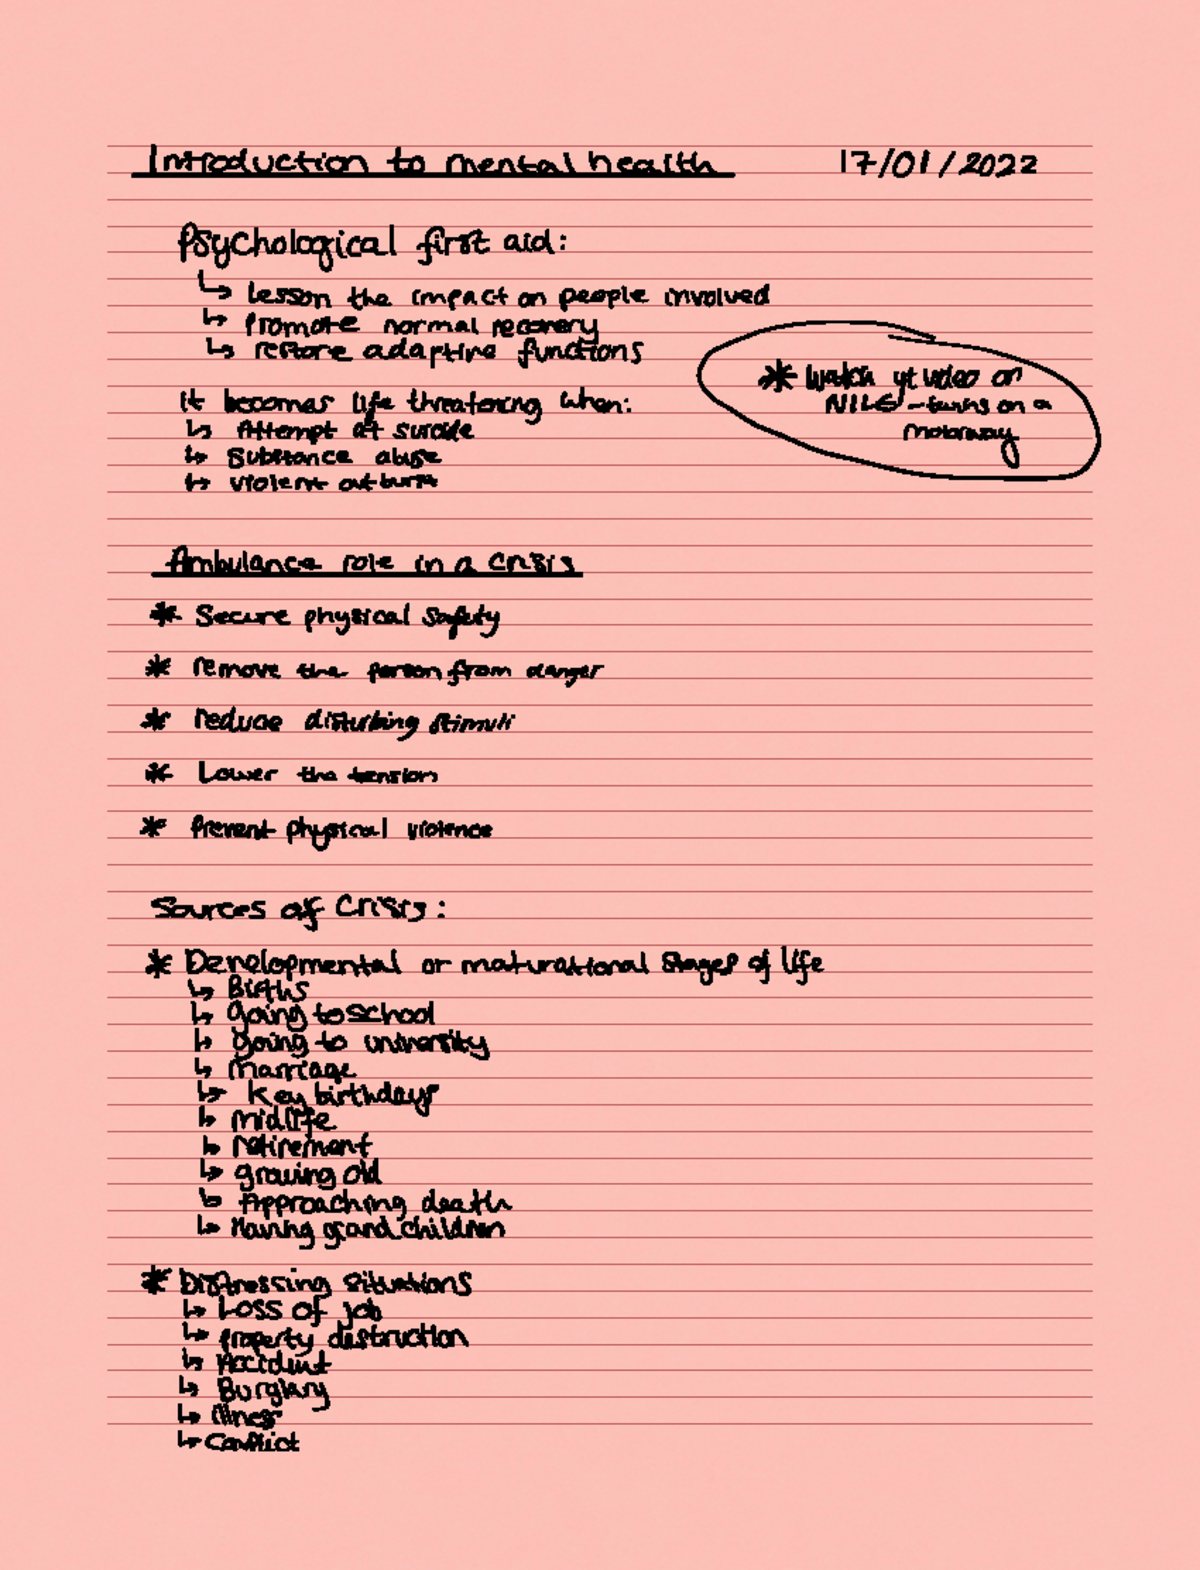 Introduction to mental health 17/01/2022
Psychological first aid:
↳ lesson the impact on people involved
↳ Promote normal recovery
↳ restore adaptive functions
* Watch yt video on
- twins on a
motorway
It becomes life threatoring when:
↳ Attempt at suicide
↳ Substance abuse
↳ violent outburst
Ambulance role in a crisis
* Secure physical safety
* remove the person from danger
* reduce disturbing stimuli
* Lower the tension
* Prevent physical violence
Sources of Crisis:
* Developmental or maturational stages of life
↳ Births
↳ going to school
↳ going to university
↳ marriage
↳ key birthdays
↳ midlife
↳ retirement
↳ growing old
↳ Approaching death
↳ Having grandchildren
* Distressing situations
↳ Loss of job
↳ property distruction
↳ Accident
↳ Burglary
↳ illness
↳ Conflict